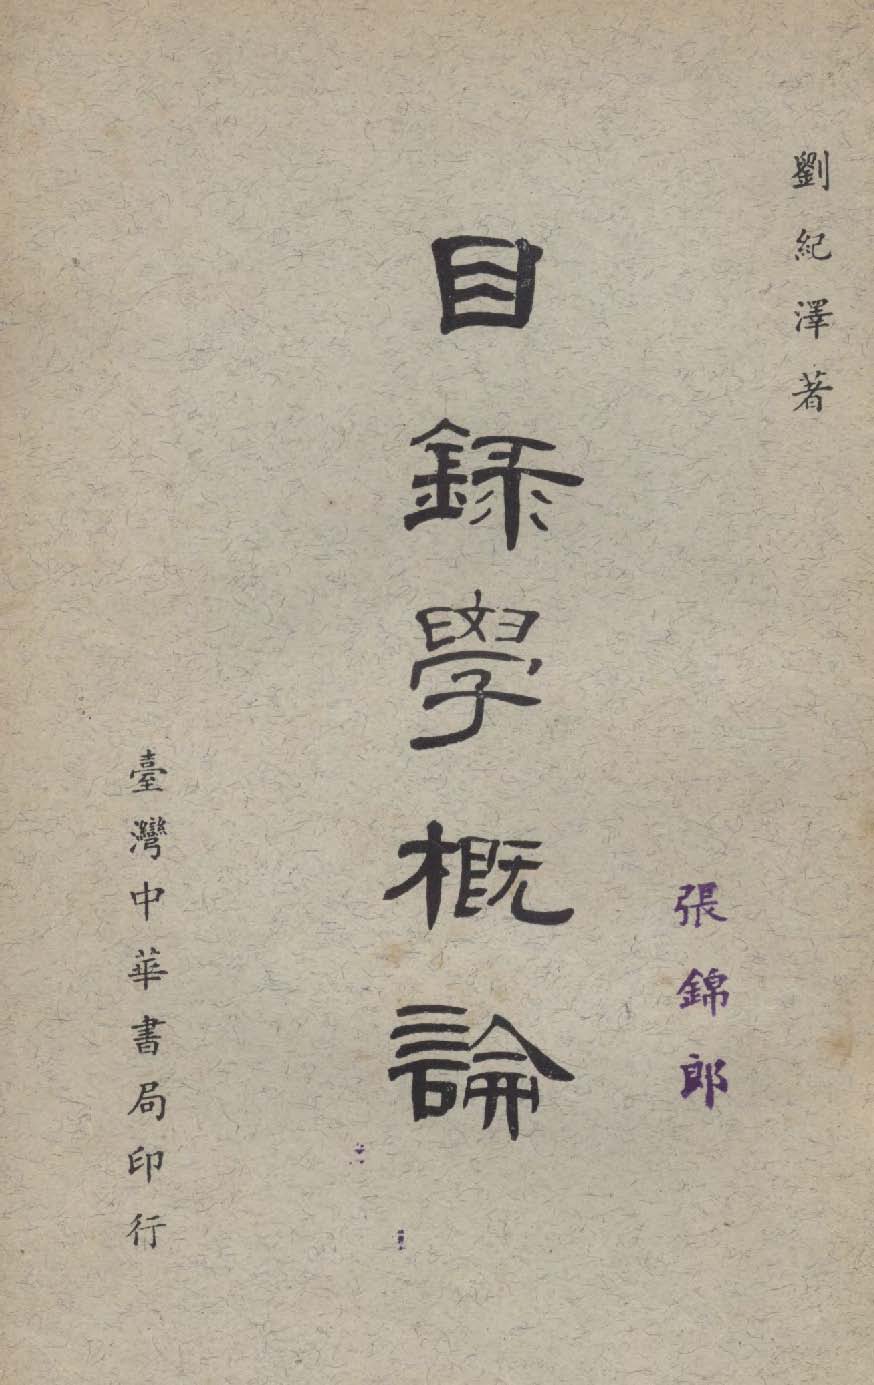 劉紀澤著
目錄學概論
張錦郎
臺灣中華書局印行